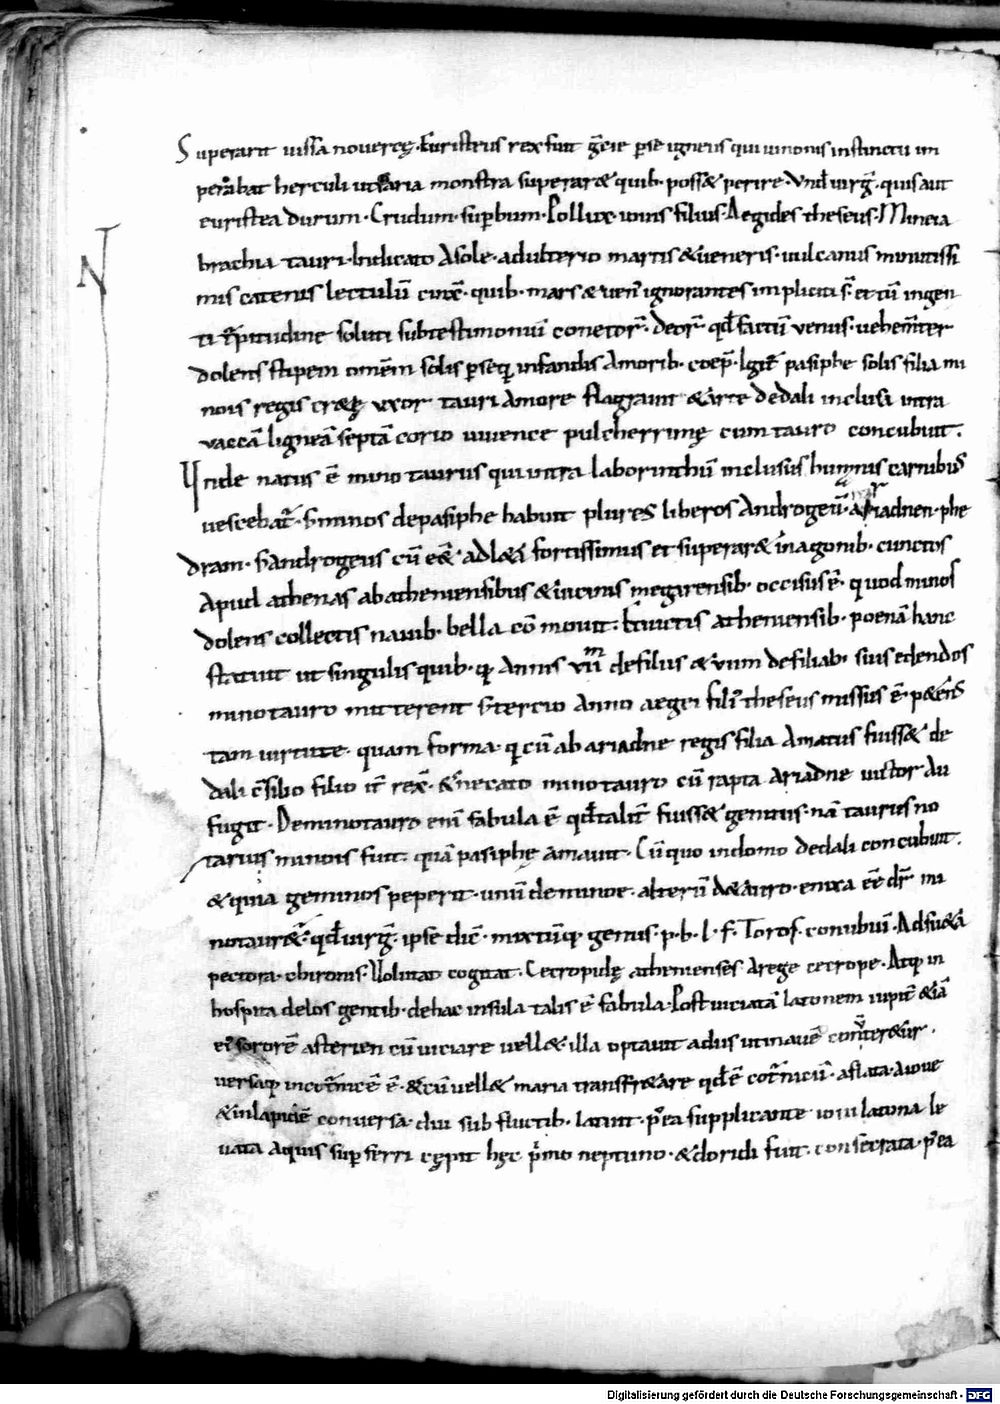 Superarit iussa nouercę. Euristeus rex fuit grecie perse igneus qui iunonis instinctu im
perabat herculi ut uaria monstra superar& quib· poss& perire. Vnd uirḡ. quis aut
euristea durum. Crudum. superbum. Pollux. iouis filius. Aegides theseus. Minoia
brachia tauri. Indicato Asole. adulterio martis & ueneris. uulcanus minutissi
mis catenis lectulū cinx̄. quib· mars & ven ignorantes impliciti s̄. et cū ingen
ti turpitudine soluti sub testimoniū deor̄. qd factū venus. uehem̄ter
dolens stipem omēm solis perseq infandis Amorib· coep̄. Igit pasiphe solis filia mi
nois regis cr&ę vxor tauri Amore flagrauit & arte dedali inclusa intra
vaccā ligneā septā corio iuuence pulcherrimę cum tauro concubuit.
Inde natus ē mino taurus qui intra laborinthū inclusus humanis carnibus
uescebat̄. S minos depasiphe habuit plures liberos Androgeū. ariadnen. phe
dram. S androgeus cū ēē adl&a fortissimus et superar& in agonib· cunctos
Apud athenas ab atheniensibus & uicinis megarensib· occisus ē. quod minos
dolens collectis nauib· bella cō mouit. & uictis atheniensib· poenā hanc
statuit ut singulis quib· annis VII de filiis & VII m de filiab· suis edendos
mino tauro mitterent S tercio Anno aegei fili theseus missus ē. potens
tam uirtute. quam forma. q cū ab ariadne regis filia Amatus fuiss& de
dali c̄silio filio it̄ rex̄. & necato minotauro cū rapta Ariadne uictor au
fugit. De minotauro enī fabula ē qd talit̄ fuiss& genitus. nā taurus no
tarius minois fuit. quā pasiphę amauit. Cū quo in domo dedali concubuit.
& quia geminos peperit. unū deminoe. alterū de tauro. enixa ēē dr̄ mi
notaur&. qd uirḡ. ipse dic̄. mixtūq genus. p. b. l. f. Toros. conubuī. Adsu&a
pectora. chironis. Uolutat cogitat. Cecropidę athenienses Arege cecrope. Atq in
hospita delos gentib· de hac insula talis ē fabula. Post uiciatā latonem iupit̄ & iā
ei sororē asterien cū uiciare uell& illa optauit adiis ut in auē conuerter&ur.
uersaq in coturnicē ē. & cū uell& maria transfr&are qd ē cotnicū. aflata. Aioue
& in lapidē conuersa. diu sub fluctib· latuit. p̄ea supplicante ioui latona le
uata Aquis super ferri cępit hęc p̄mo neptuno. & doridi fuit. consecrata. p̄ea
Digitalisierung gefördert durch die Deutsche Forschungsgemeinschaft - DFG